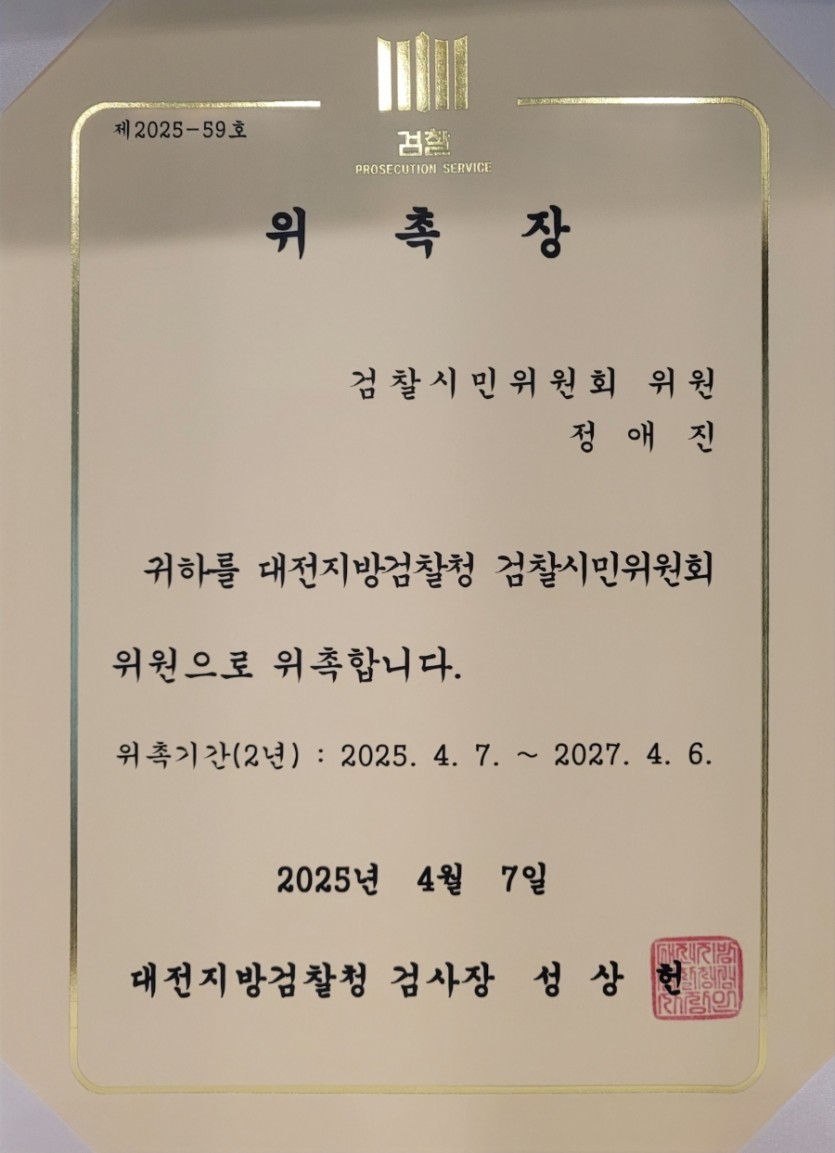 제2025-59호
검찰
PROSECUTION SERVICE
위 촉 장
검찰시민위원회 위원
정 애 진
귀하를 대전지방검찰청 검찰시민위원회
위원으로 위촉합니다.
위촉기간(2년) : 2025. 4. 7. ~ 2027. 4. 6.
2025년 4월 7일
대전지방검찰청 검사장 성 상 헌